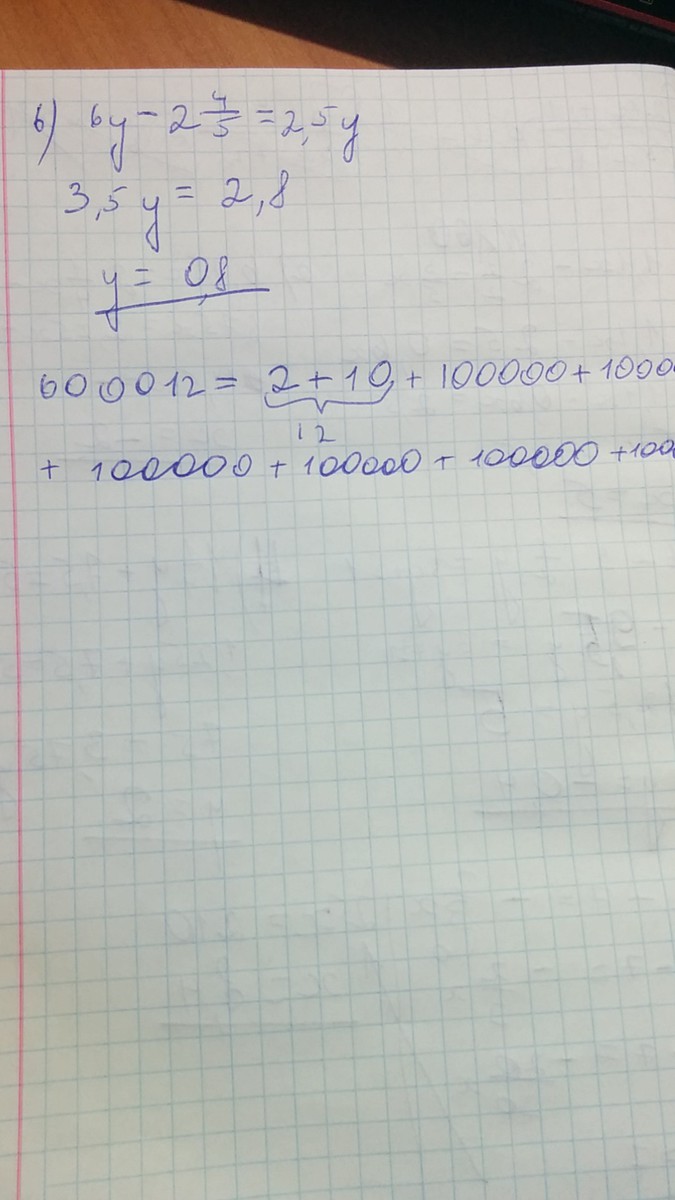 б) 6y - 2 4/5 = 2,5y
3,5y = 2,8
y = 0,8
600012 = 2 + 10 + 100000 + 1000
12
+ 100000 + 100000 + 100000 + 100